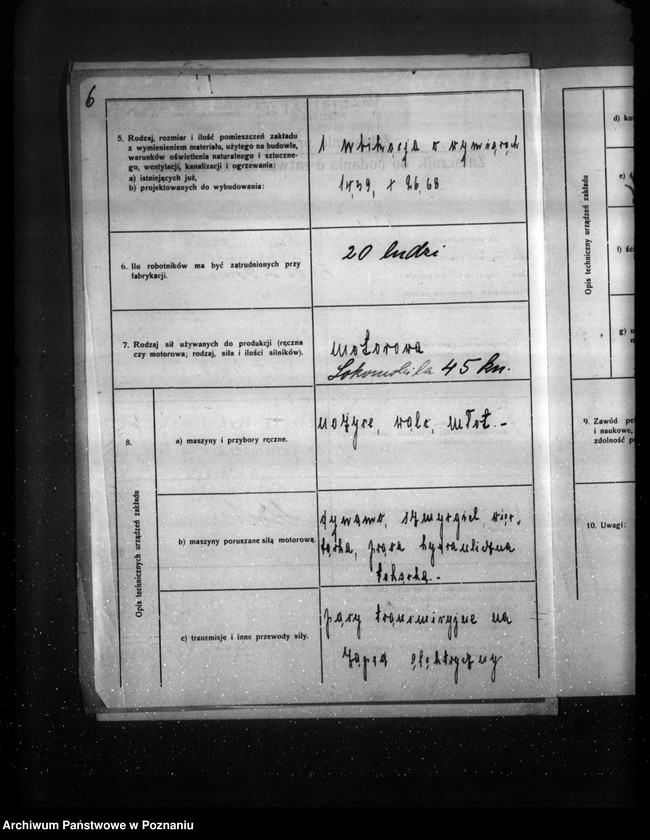 6
5. Rodzaj, rozmiar i ilość pomieszczeń zakładu
z wymienieniem materiału, użytego na budowle,
warunków oświetlenia naturalnego i sztuczne-
go, wentylacji, kanalizacji i ogrzewania:
a) istniejących już,
b) projektowanych do wybudowania:
1 ubikacja o wymiarach
17,39, + 26,68
6. Ilu robotników ma być zatrudnionych przy
fabrykacji.
20 ludzi
7. Rodzaj sił używanych do produkcji (ręczna
czy motorowa; rodzaj, siła i ilości silników).
motorowa
Lokomobila 45 km.
8.
Opis technicznych urządzeń zakładu
a) maszyny i przybory ręczne.
nożyce, walc, młot. -
b) maszyny poruszane siłą motorową.
dynamo, szmyrgiel, wier-
tarka, prasa hydrauliczna
tokarka. -
c) transmisje i inne przewody siły.
pasy transmisyjne na
zapęd elektryczny
Opis techniczny urządzeń zakładu
d)
e)
f)
g)
9. Zawód
i naukowe,
zdolność
10. Uwagi:
Archiwum Państwowe w Poznaniu